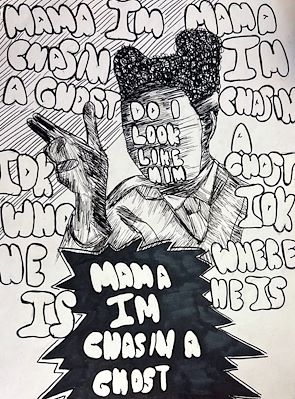 MAMA IM MAMA
CHASIN
A GHOST
IDK
WHO
HE
IS
IM
CHASIN
A
GHOST
IDK
WHERE
HE IS
DO I
LOOK
LIKE
HIM
MAMA
IM
CHASIN A
GHOST